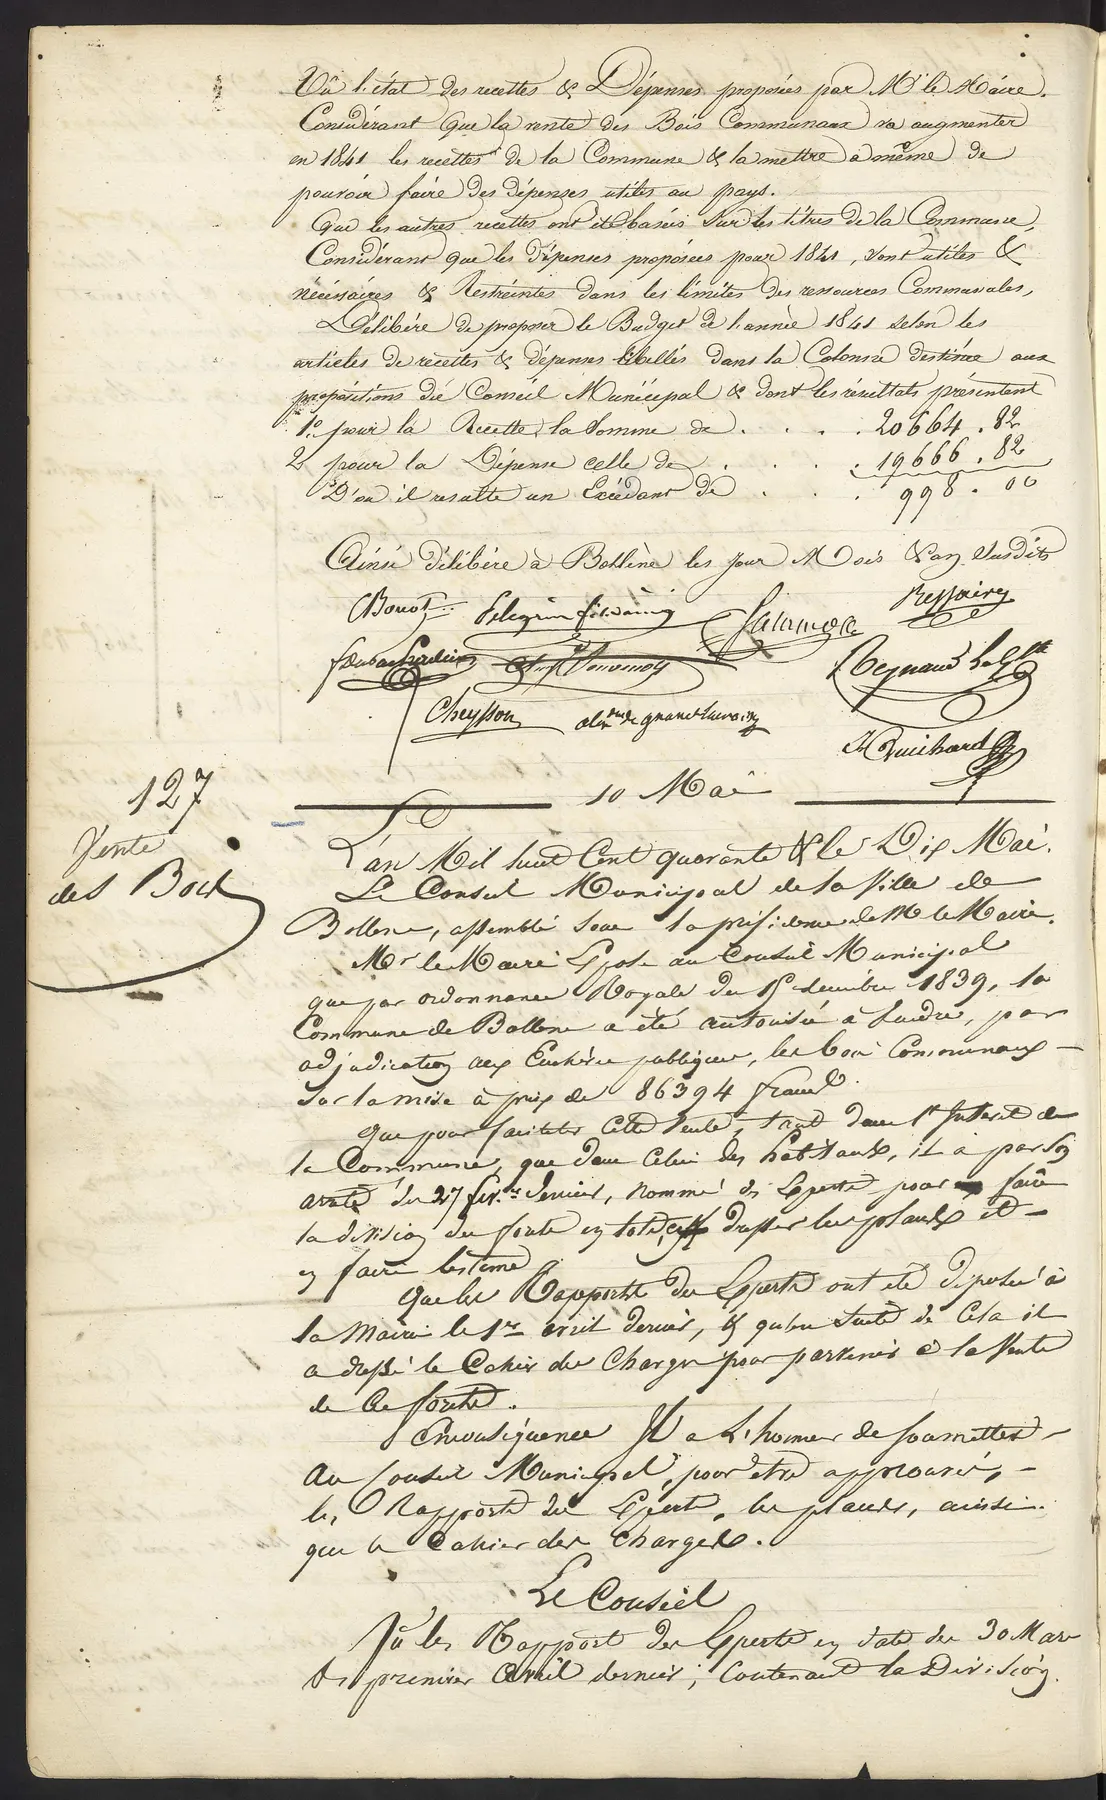 Vû l'état des recettes & Dépenses proposées par Mr le Maire.
Considérant que la vente des Bois Communaux va augmenter
en 1841 les recettes de la Commune & la mettre à même de
pouvoir faire des dépenses utiles au pays.
Que les autres recettes ont été basées sur les titres de la Commune,
Considérant que les dépenses proposées pour 1841, sont utiles &
nécessaires & Restreintes dans les limites des ressources Communales,
Délibére de proposer le Budget de l'année 1841 selon les
articles de recettes & dépenses libellés dans la Colonne destinée aux
propositions du Conseil Municipal & dont les résultats présentent
1° pour la Recette, la Somme de . . . . 20664 . 82
2 pour la Dépense celle de . . . . 19666 . 82
D'où il resulte un Excédant de . . . 998 . 00
Ainsi délibéré à Bollène les jour Mois & an Susdits
Pelegrin
Reynaud
Cheysson
Guichard
10 Mai
127
Vente
des Bois
L'an Mil huit Cent quarante & le Dix Mai.
Le Conseil Municipal de la Ville de
Bollene, assemblé sous la présidence de Mr le Maire.
Mr le Maire Expose au Conseil Municipal
que par ordonnance Royale du 15 décembre 1839, la
Commune de Bollene a été autorisée à Vendre, par
adjudication aux Enchères publiques, les bois Communaux
sur la mise à prix de 86394 francs.
que pour faciliter Cette Vente, tant dans l'Interet de
la Commune, que dans Celui des habitants, il a par son
arreté du 27 fevr. dernier, nommé des Experts pour faire
la division des forets en lots, dresser les plans et
en faire l'estime
Que les Rapports des Experts ont été déposés à
la Mairie le 1er avril dernier, & qu'en suite de Cela il
a dressé le Cahier des Charges pour parvenir à la Vente
de Ces forets.
En conséquence Il a L'honneur de soumettre
Au Conseil Municipal, pour être approuvés,
les Rapports des Experts, les plans, ainsi
que le Cahier des Charges.
Le Conseil
Vû les Rapports des Experts en date du 30 Mars
& premier Avril dernier; Contenant la Division